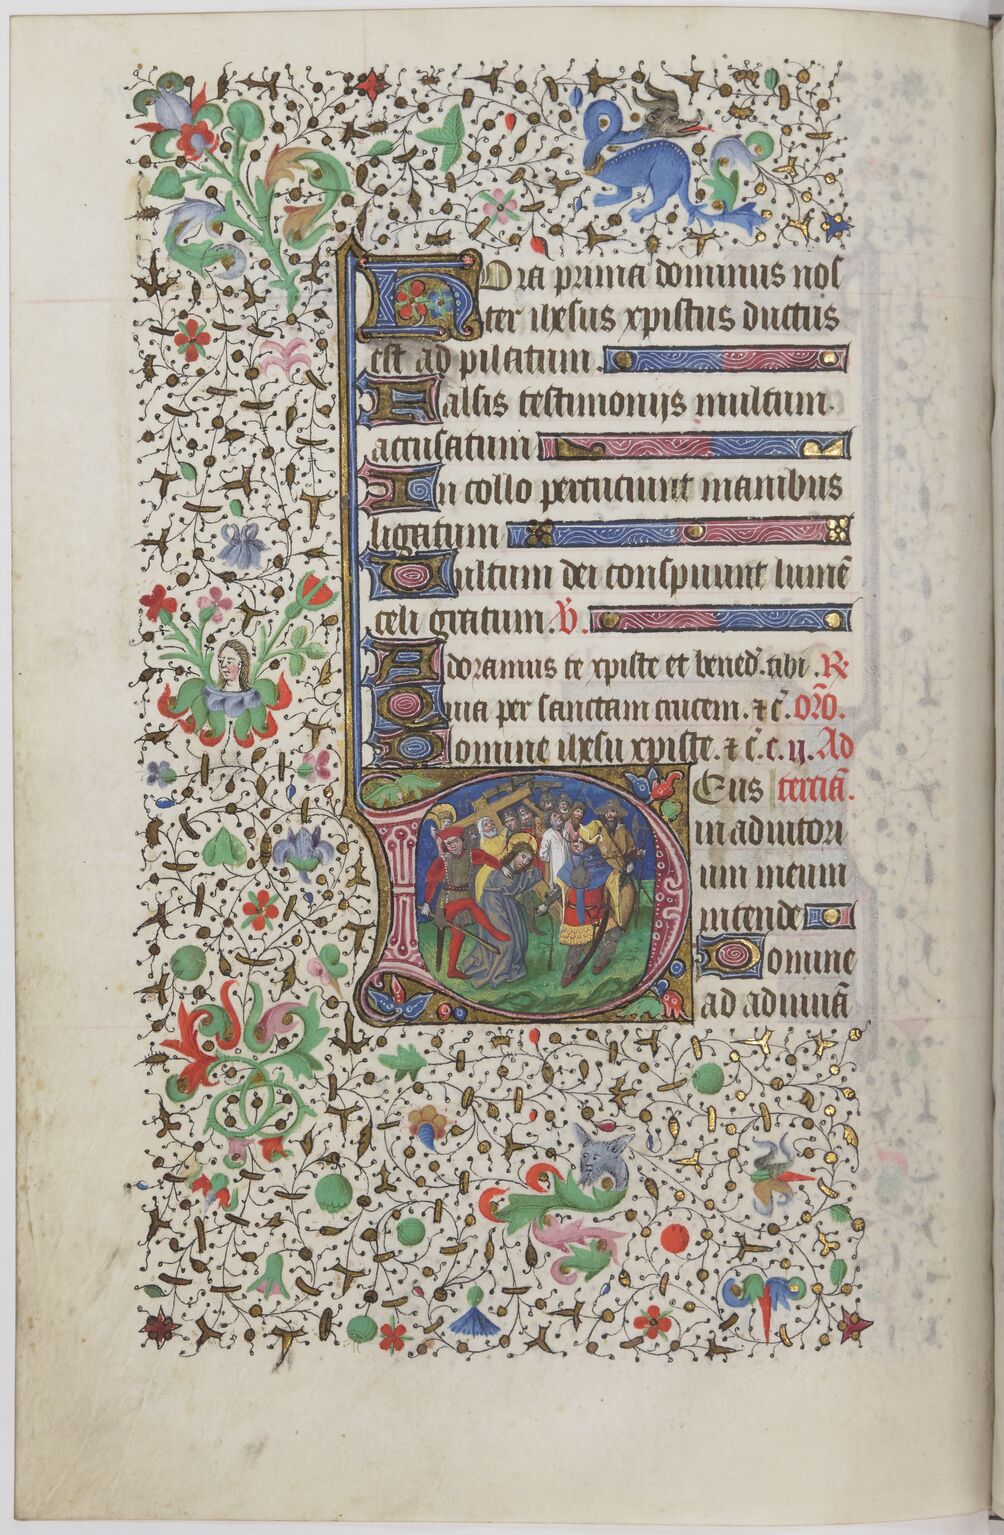 Hora prima dominus nos
ter ihesus xpistus ductus
est ad pilatum.
Falsis testimonijs multum.
accusatum
In collo percuciunt manibus
ligatum
Vultum dei conspuunt lumē
celi gratum. V̄.
Adoramus te xpiste et bened̄. tibi. R
Quia per sanctam crucem. ⁊ c̄. or̄o.
Domine ihesu xpiste. ⁊ c̄. c. ij. Ad
Deus terciā.
in adiutori
um meum
intende
Domine
ad adiuuā